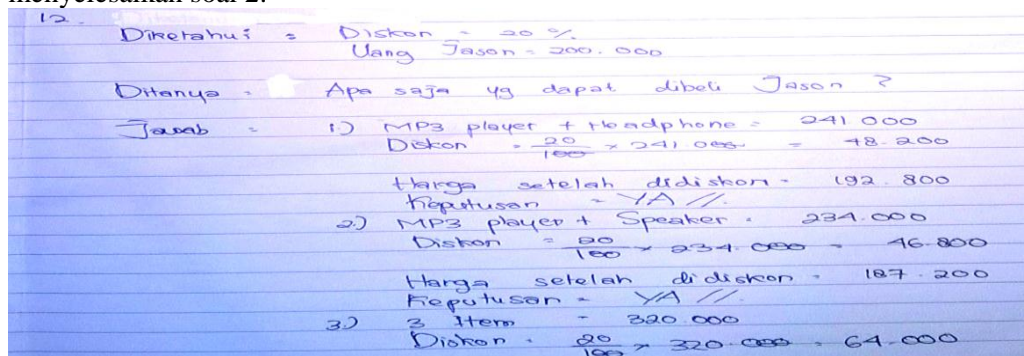 menyelesaikan soal 2.
12.
Diketahui = Diskon = 20 %
Uang Jason = 200.000
Ditanya = Apa saja yg dapat dibeli Jason ?
Jawab = 1) MP3 player + Headphone = 241.000
Diskon = 20/100 x 241.000 = 48.200
Harga setelah didiskon = 192.800
Keputusan = YA //.
2.) MP3 player + Speaker = 234.000
Diskon = 20/100 x 234.000 = 46.800
Harga setelah didiskon = 187.200
Keputusan = YA //.
3.) 3 Item = 320.000
Diskon = 20/100 x 320.000 = 64.000